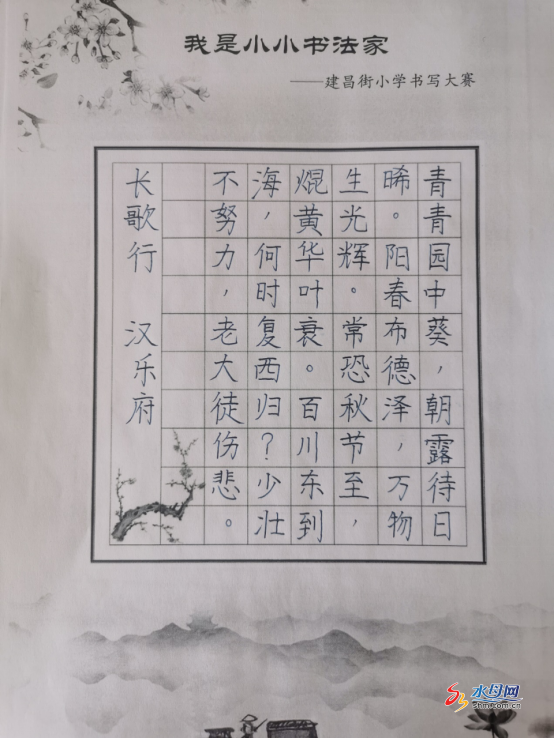 我是小小书法家
——建昌街小学书写大赛
青青园中葵，朝露待日
晞。阳春布德泽，万物
生光辉。常恐秋节至，
焜黄华叶衰。百川东到
海，何时复西归？少壮
不努力，老大徒伤悲。
长歌行 汉乐府
水母网
shm.com.cn